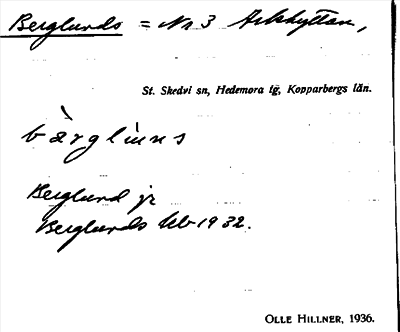 Berglunds = Nr 3 Arkhyttan,
St. Skedvi sn, Hedemora tg, Kopparbergs län.
bärgluns
Berglund jr
Berglunds Ub 1932.
OLLE HILLNER, 1936.